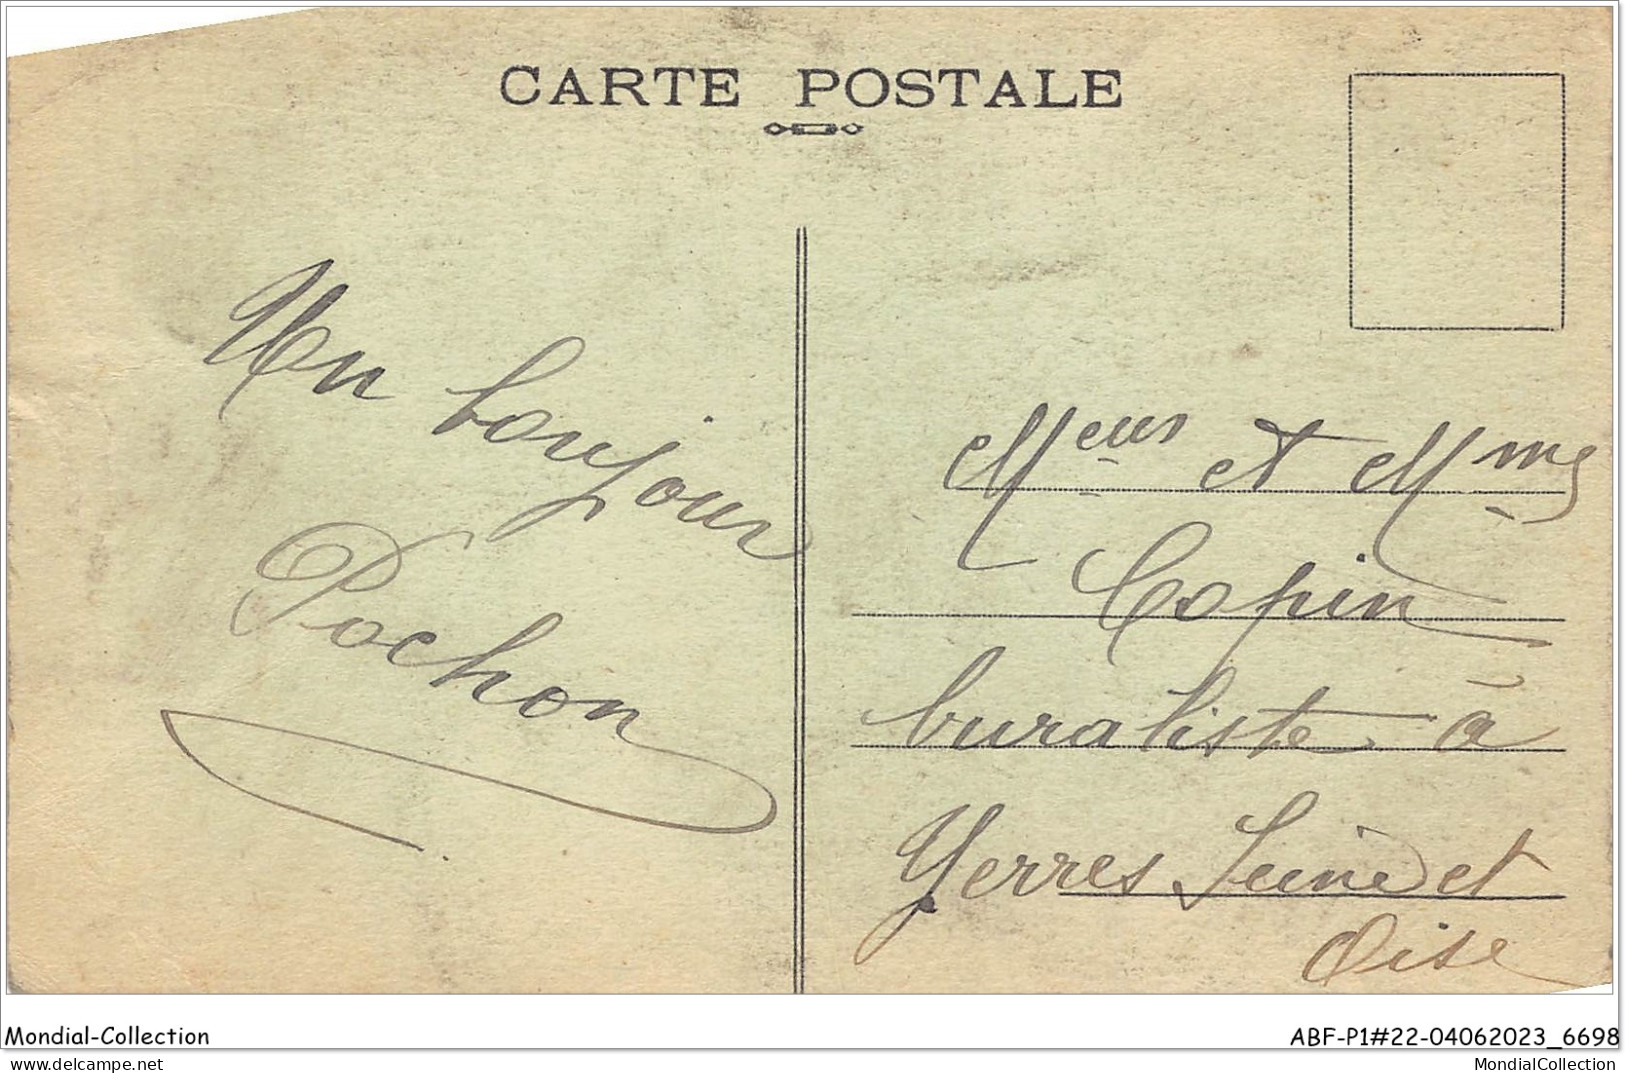 CARTE POSTALE
Un bonjour
Pochon
Meur et Mme
Copin
buraliste à
Yerres Seine et
Oise
Mondial-Collection
ABF-P1#22-04062023_6698
delcampe.net
MondialCollection